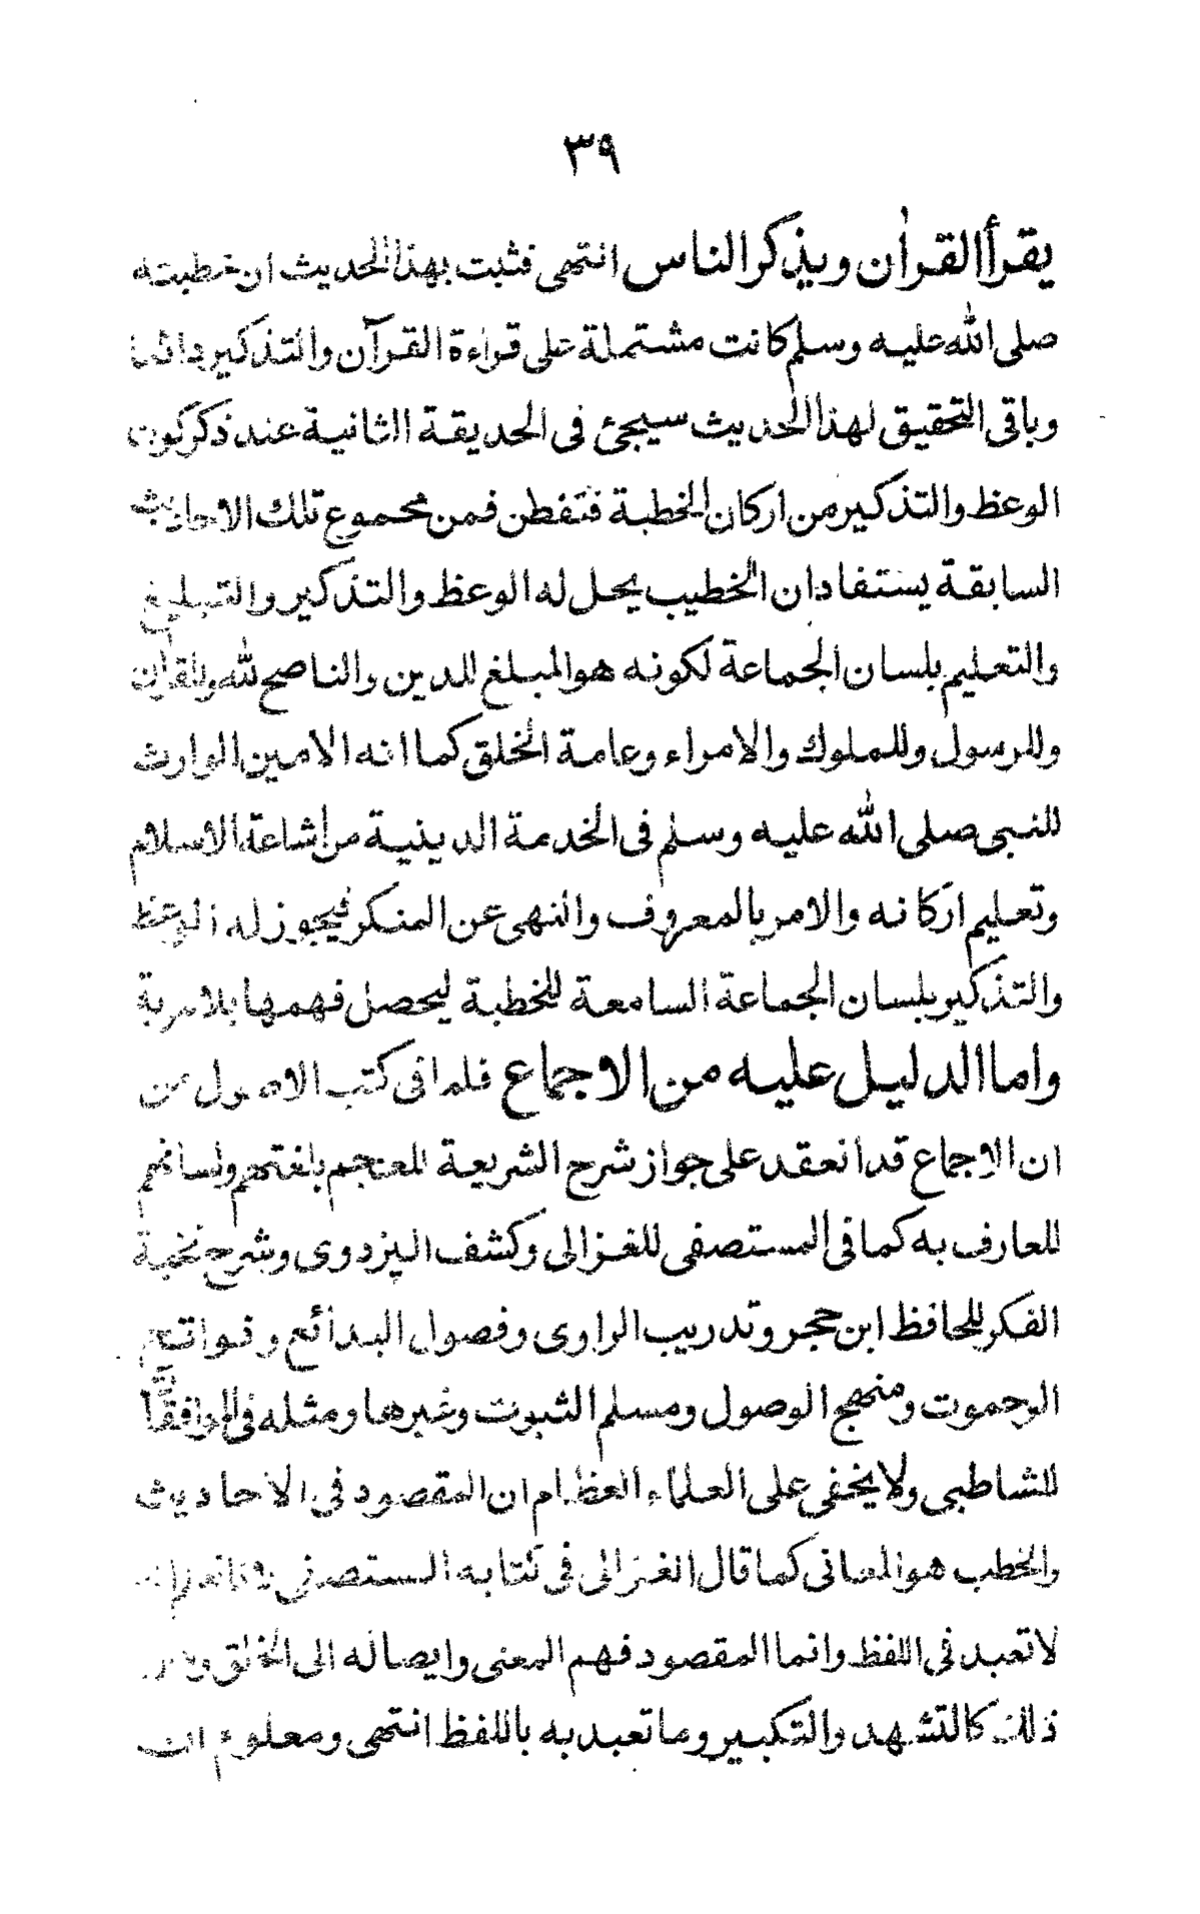 ٣٩
يقرأ القرآن ويذكر الناس انتهى فثبت بهذا الحديث ان خطبته
صلى الله عليه وسلم كانت مشتملة على قراءة القرآن والتذكير دائما
وباقي التحقيق لهذا الحديث سيجئ في الحديقة الثانية عند ذكر كون
الوعظ والتذكير من اركان الخطبة فتفطن فمن مجموع تلك الاحاديث
السابقة يستفاد ان الخطيب يحل له الوعظ والتذكير والتبليغ
والتعليم بلسان الجماعة لكونه هو المبلغ للدين والناصح لله وللقرآن
وللرسول وللملوك والامراء وعامة الخلق كما انه الامين الوارث
للنبى صلى الله عليه وسلم فى الخدمة الدينية من اشاعة الاسلام
وتعليم اركانه والامر بالمعروف والنهى عن المنكر فيجوز له الوعظ
والتذكير بلسان الجماعة السامعة للخطبة ليحصل فهمها بلا مرية
واما الدليل عليه من الاجماع فلما فى كتب الاصول من
ان الاجماع قد انعقد على جواز شرح الشريعة للعجم بلغتهم ولسانهم
للعارف به كما فى المستصفى للغزالى وكشف البزدوى وشرح نخبة
الفكر للحافظ ابن حجر وتدريب الراوى وفصول البدائع وفواتح
الرحموت ومنهج الوصول ومسلم الثبوت وغيرها ومثله فى الموافقات
للشاطبى ولا يخفى على العلماء العظام ان المقصود فى الاحاديث
والخطب هو المعانى كما قال الغزالى فى كتابه المستصفى
لا تعبد فى اللفظ وانما المقصود فهم المعنى وايصاله الى الخلق
ذلك كالتشهد والتكبير وما تعبد به باللفظ انتهى ومعلوم ان